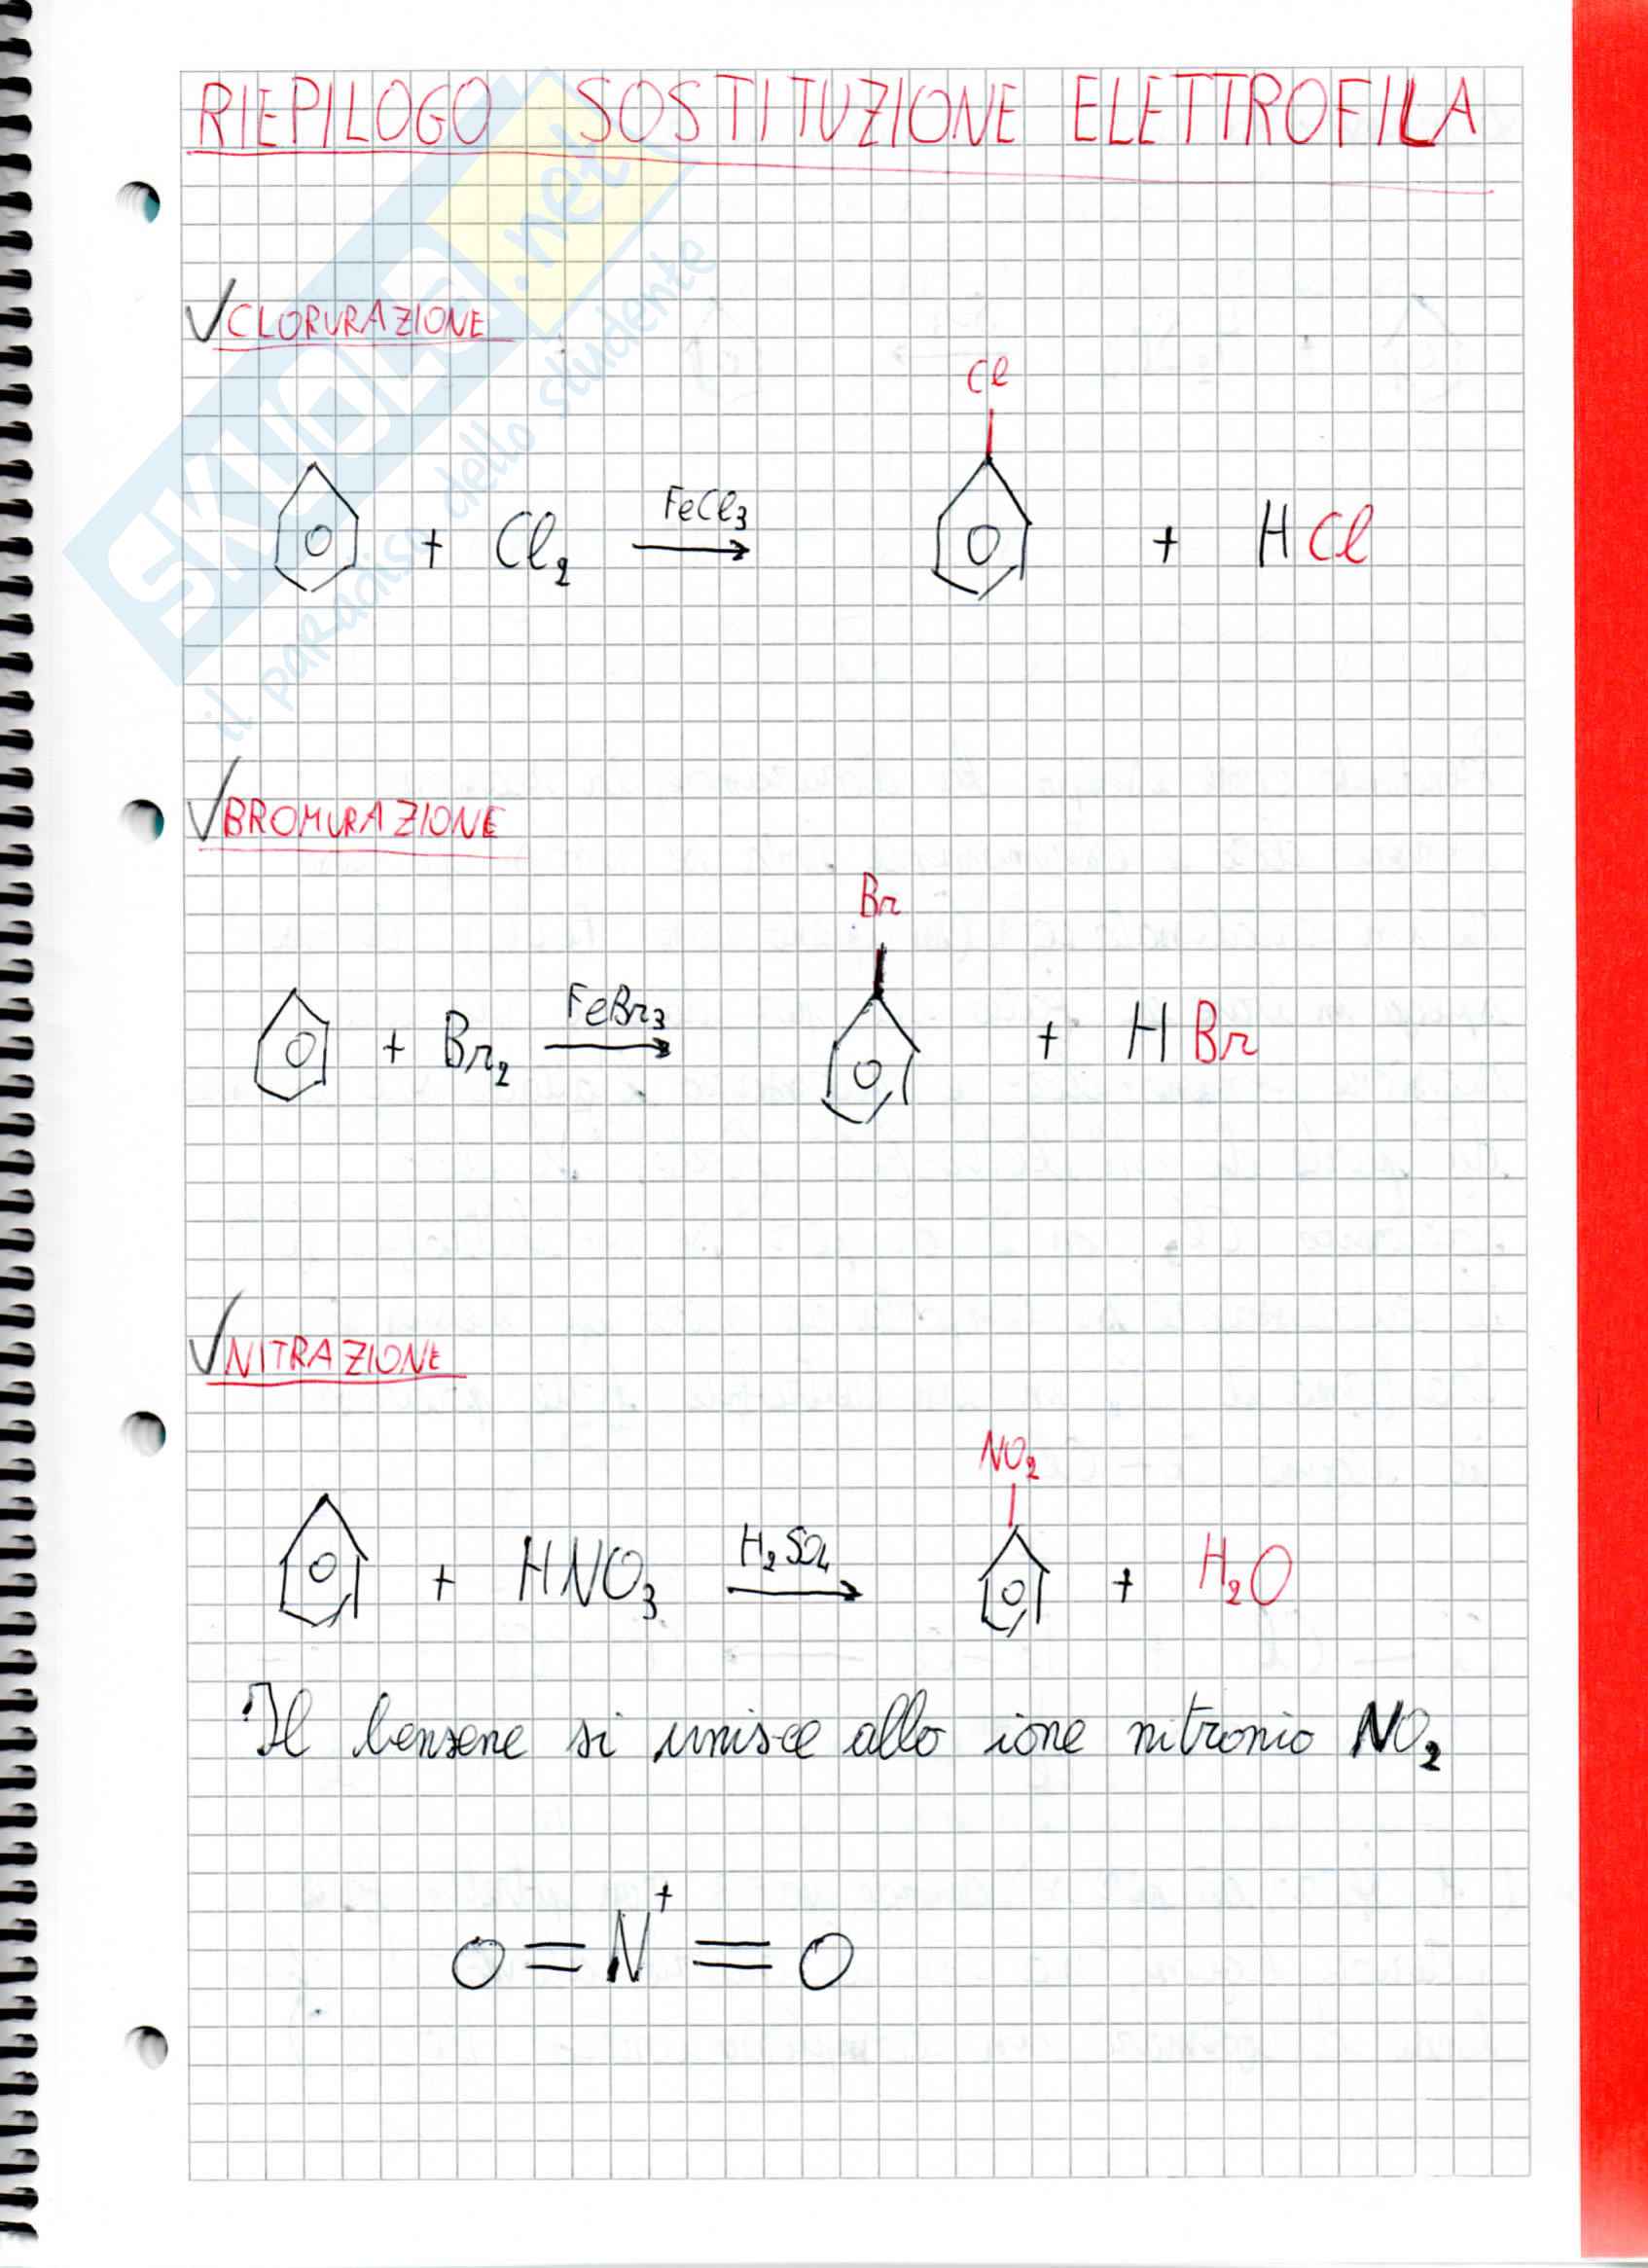 RIEPILOGO SOSTITUZIONE ELETTROFILA
SKUOLA.net
il paradiso dello studente
√CLORURAZIONE
Cl
+ Cl₂ FeCl₃ → + HCl
√BROMURAZIONE
Br
+ Br₂ FeBr₃ → + HBr
√NITRAZIONE
NO₂
+ HNO₃ H₂SO₄ → + H₂O
Il benzene si unisce allo ione nitronio NO₂
O=N⁺=O